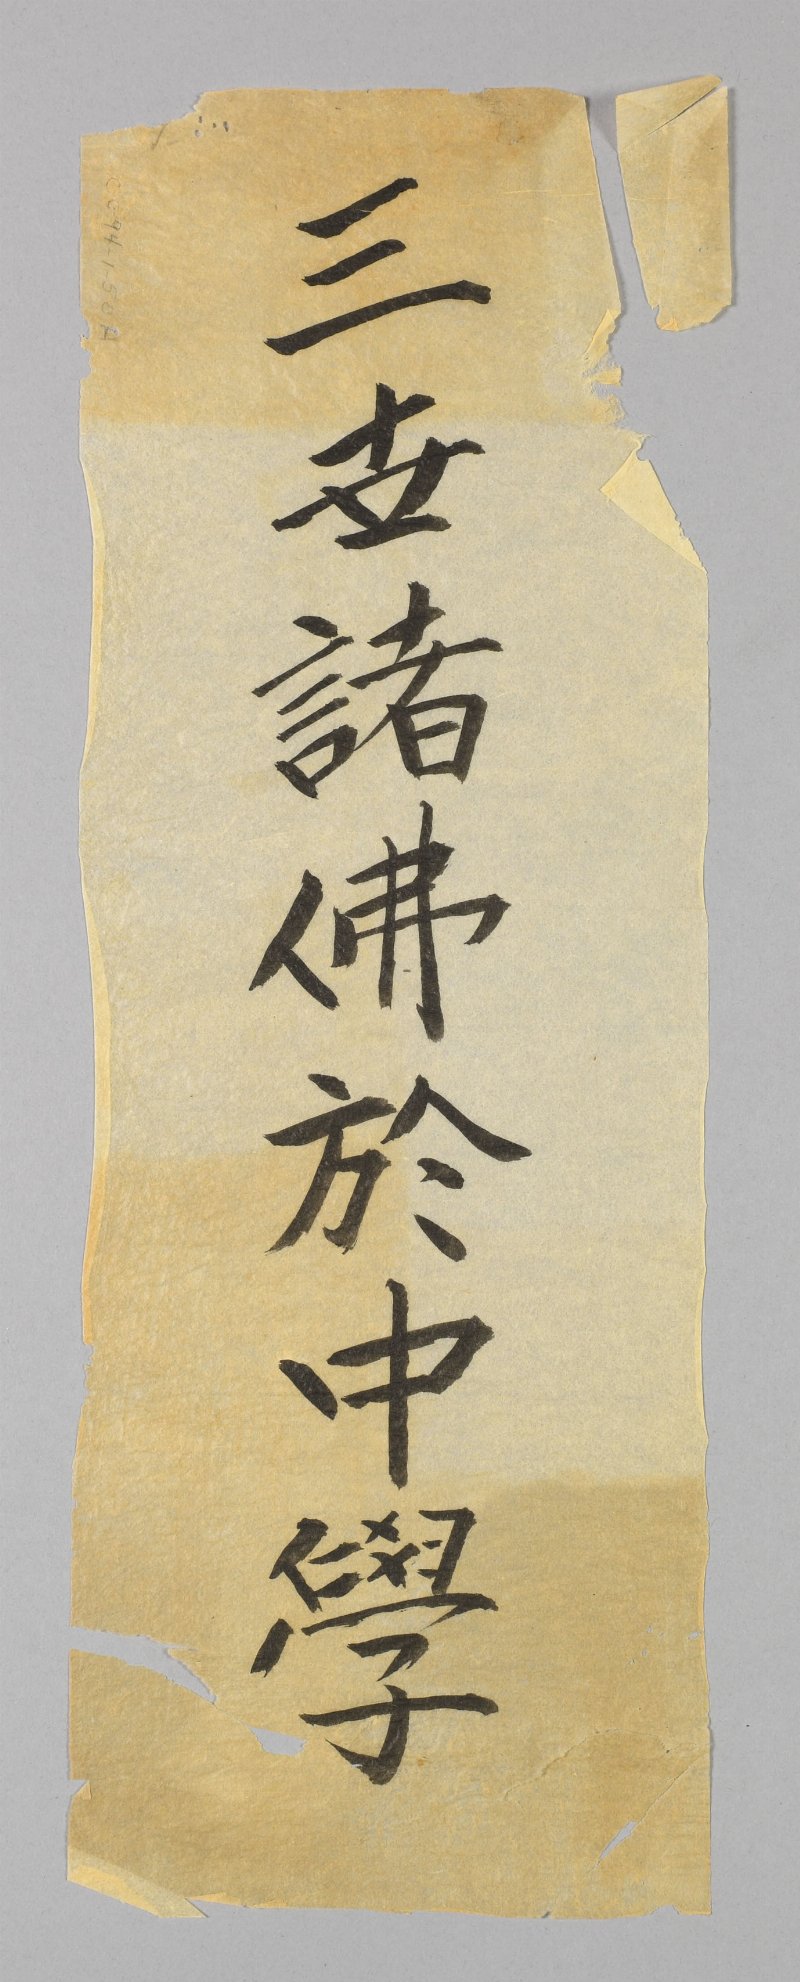 三世諸佛於中學
CC94.1.50A